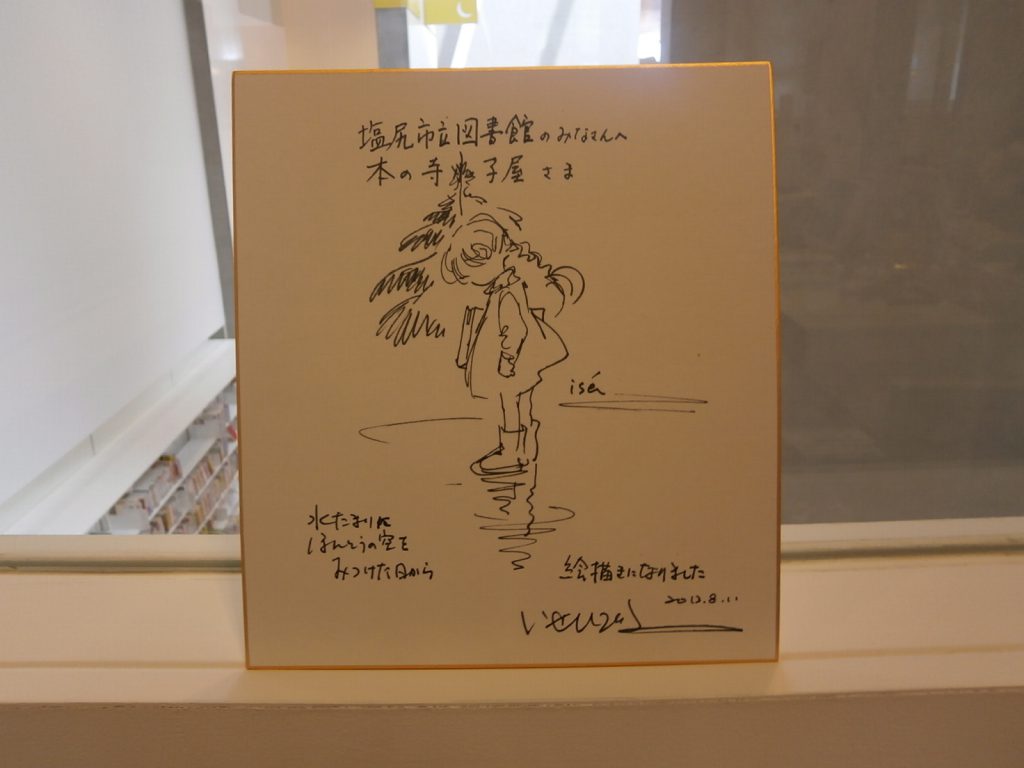 塩尻市立図書館のみなさんへ
本の寺子屋さま
isé
水たまりに
ほんとうの空を
みつけた日から
絵描きになりました
2012.8.11
いせひでこ